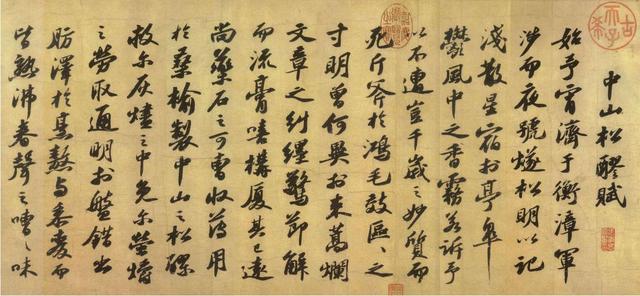 古希天子
中山松醪賦
始予宵濟于衡漳軍
涉而夜號燧松明以記
淺散星宿於亭皐
欝風中之香霧若訴予
以不遭豈千歲之妙質而
死斤斧於鴻毛效區〻之
寸明曾何異於束蒿爛
文章之糾纏驚節解
而流膏嘻構厦其已遠
尚藥石之可曹收薄用
於桑榆製中山之松醪
救尔灰燼之中免尔螢爝
之勞取通明於盤錯出
肪澤於烹熬与黍麥而
皆熟沸舂聲之嘈〻味